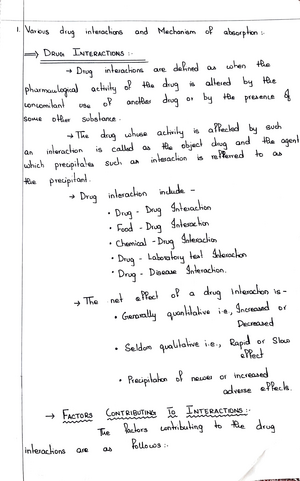 1. Various drug interactions and Mechanism of absorption :-
⟹ DRUG INTERACTIONS :-
→ Drug interactions are defined as when the
pharmacological activity of the drug is altered by the
concomitant use of another drug or by the presence of
some other substance.
→ The drug whose activity is affected by such
an interaction is called as the object drug and the agent
which precipitates such an interaction is reffered to as
the precipitant.
→ Drug interaction include -
• Drug - Drug Interaction
• Food - Drug Interaction
• Chemical - Drug Interaction
• Drug - Laboratory test Interaction
• Drug - Disease Interaction.
→ The net effect of a drug interaction is -
• Generally quantitative i.e., Increased or
Decreased
• Seldom qualitative i.e., Rapid or Slow
effect
• Precipitation of newer or increased
adverse effects.
→ FACTORS CONTRIBUTING TO INTERACTIONS :-
The factors contributing to the drug
interactions are as follows :-